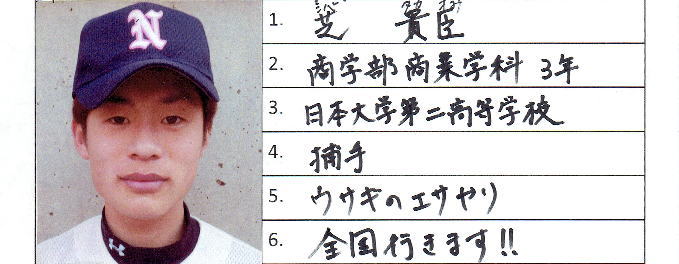 N
1. 芝 貴臣
2. 商学部商業学科 3年
3. 日本大学第二高等学校
4. 捕手
5. ウサギのエサやり
6. 全国行きます!!